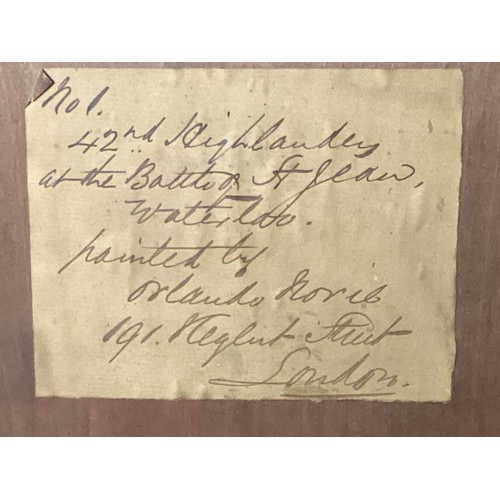 No 1.
42nd Highlanders
at the Battle of St Jean,
Waterloo.
painted by
Orlando Norie
191. Regent Street
London.